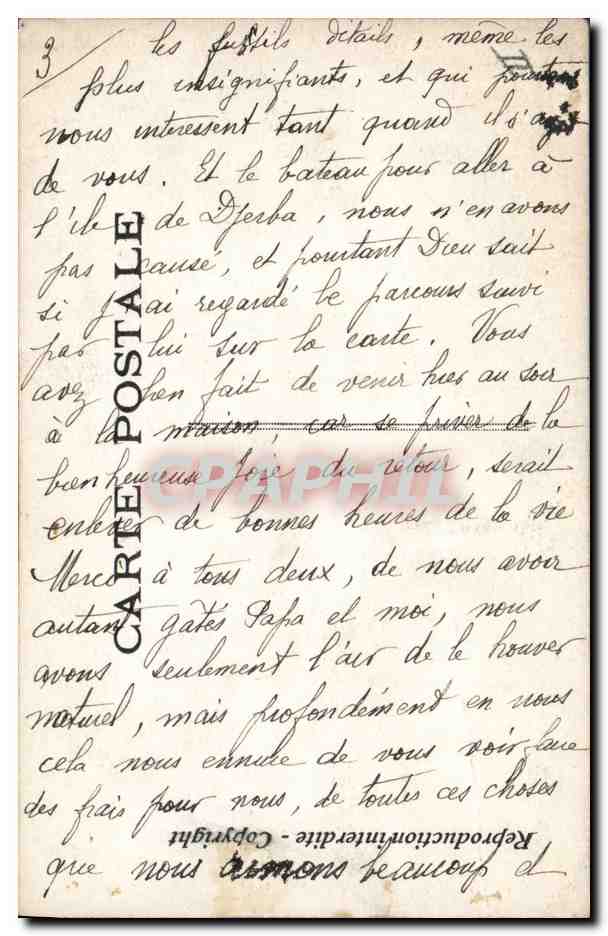 3/ les futils détails, même les
III
plus insignifiants, et qui pourtant
nous intéressent tant quand il s'agit
de vous. Et le bateau pour aller à
l'île de Djerba, nous n'en avons
pas causé, et pourtant Dieu sait
si j'ai regardé le parcours suivi
par lui sur la carte. Vous
avez bien fait de venir hier au soir
à la maison, car se priver de la
bienheureuse joie du retour, serait
enlever de bonnes heures de la vie
Merci à tous deux, de nous avoir
autant gâtés Papa et moi, nous
avons seulement l'air de le trouver
naturel, mais profondément en nous
cela nous ennuie de vous voir faire
des frais pour nous, de toutes ces choses
que nous aimons beaucoup et
CARTE POSTALE
Reproduction interdite - Copyright
CPAPHIL